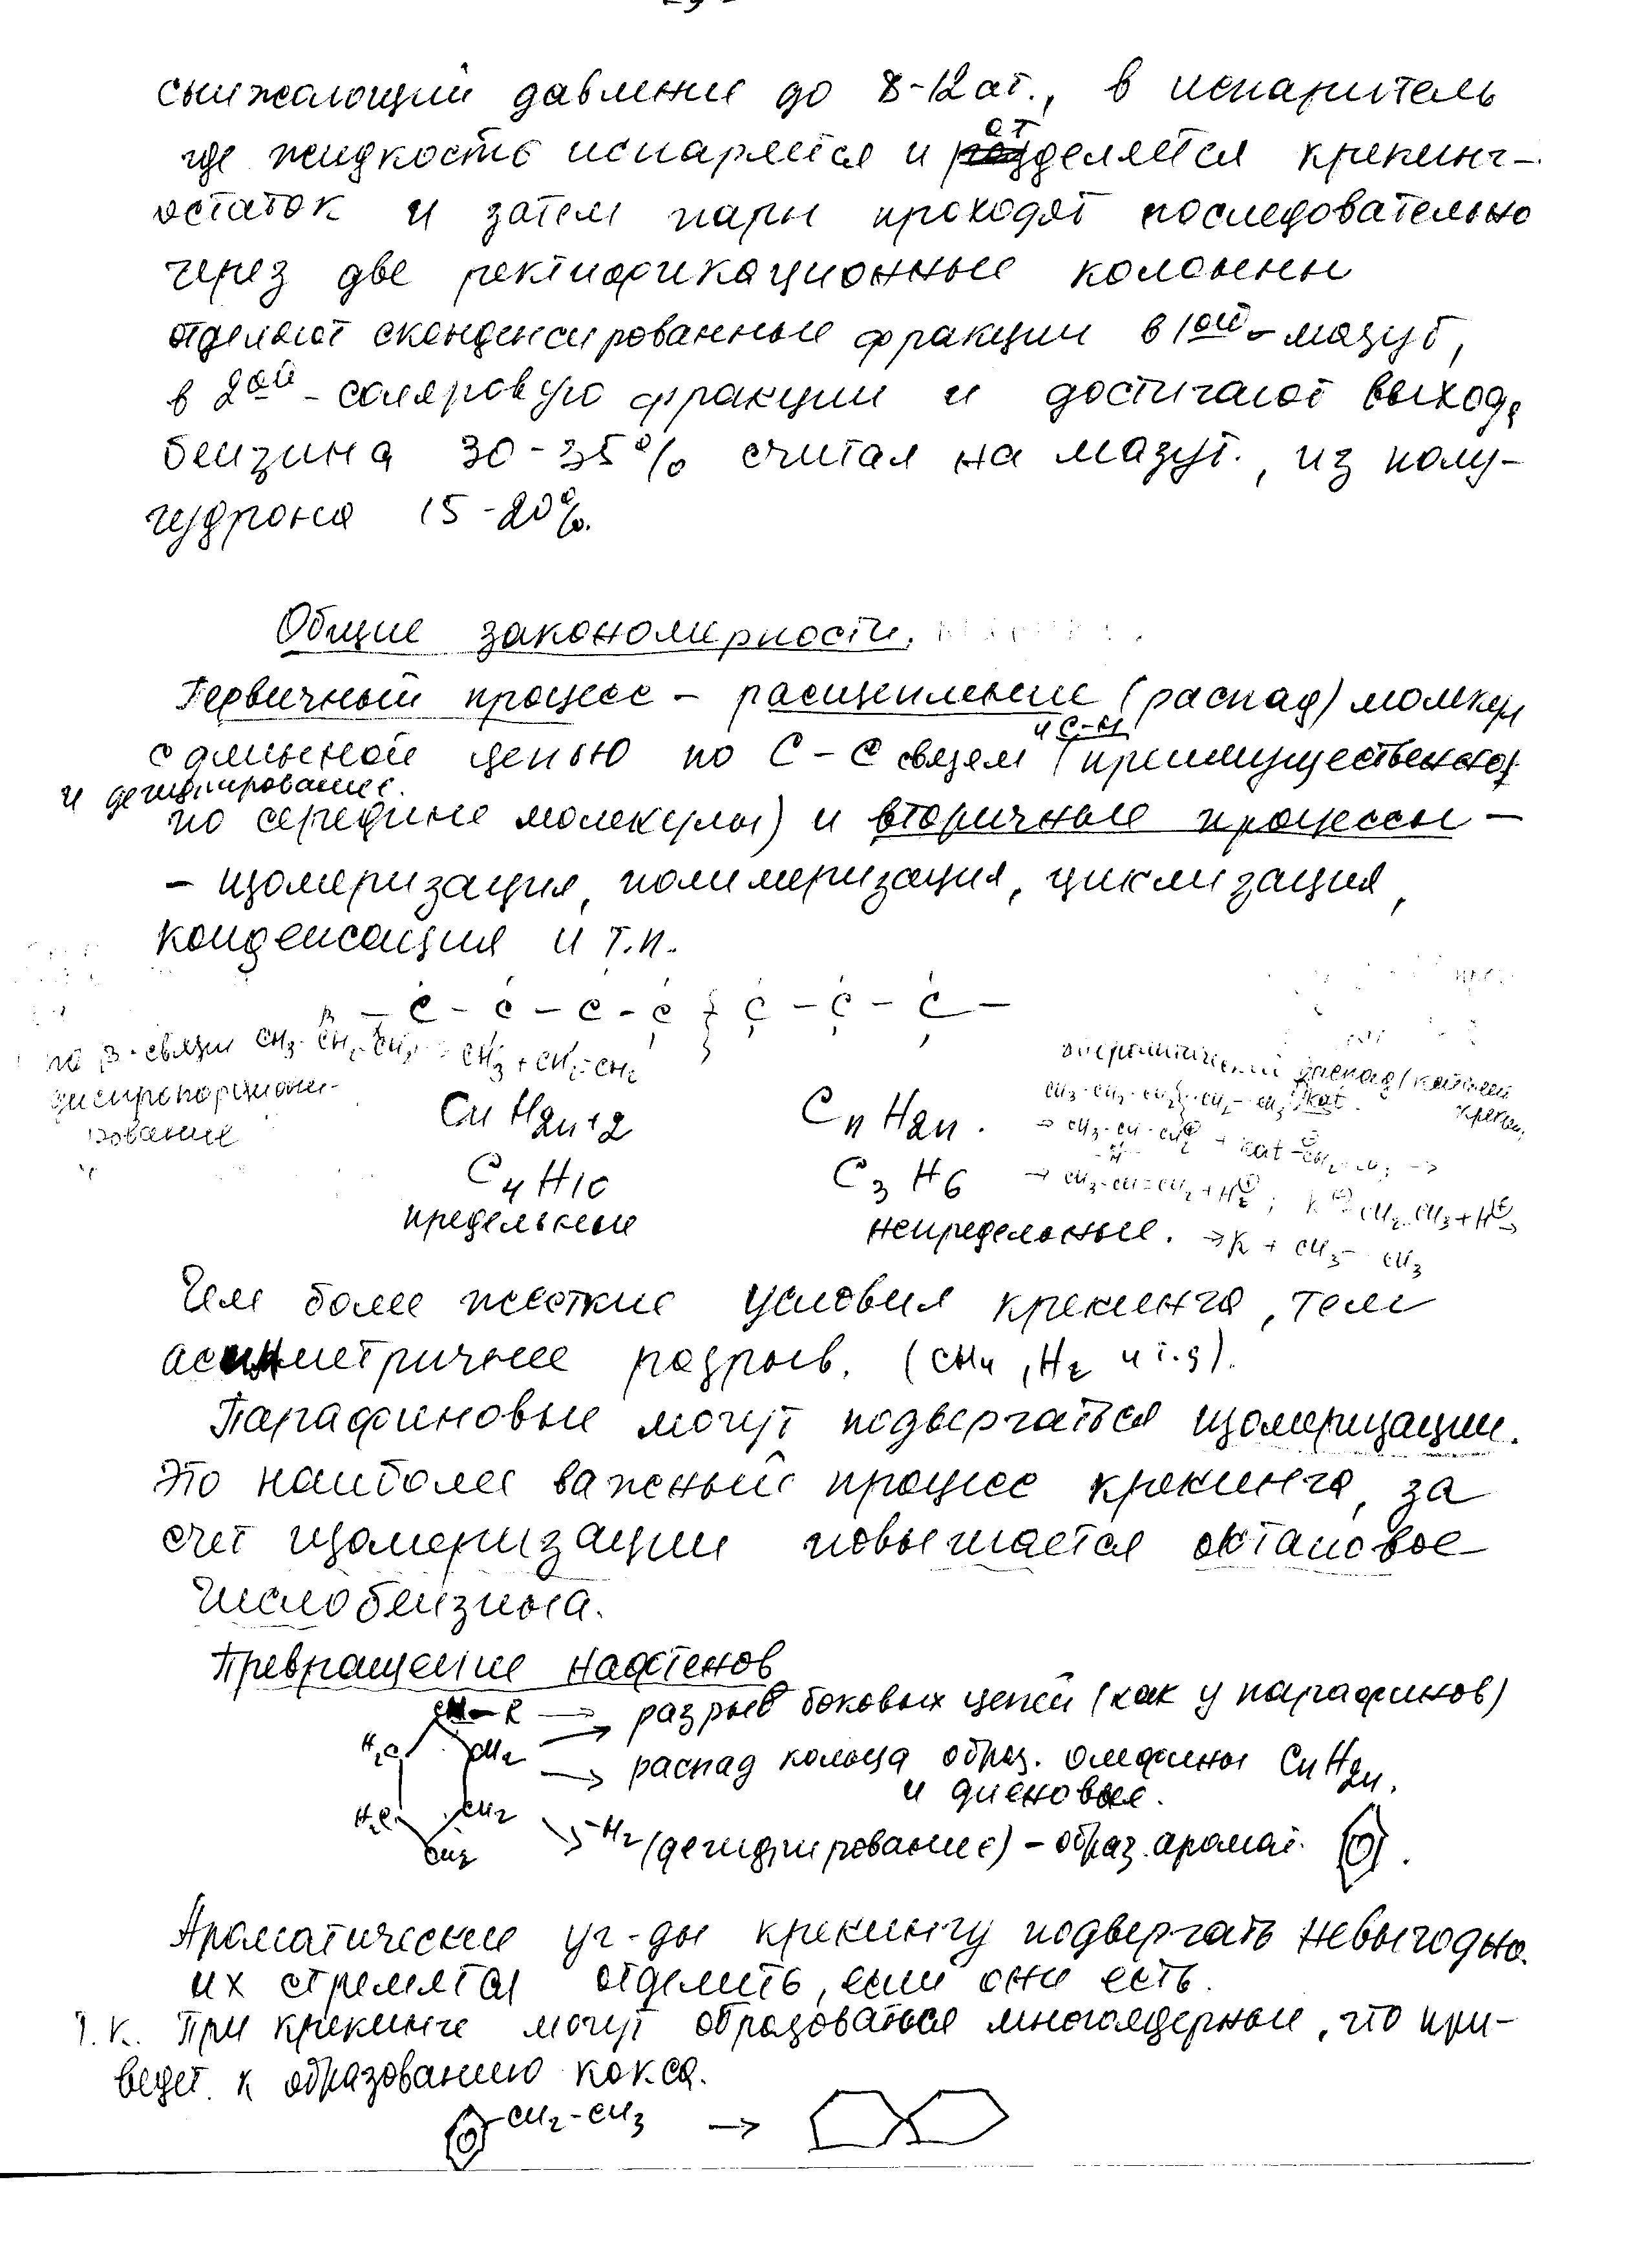 снижающий давление до 8-12 ат., в испаритель
где жидкость испаряется и отделяется крекинг-
остаток и затем пары проходят последовательно
через две ректификационные колонны
отделяют сконденсированные фракции в 1ой - мазут,
в 2ой - соляровую фракции и достигают выхода
бензина 30-35% считая на мазут., из полу-
гудрона 15-20%.
Общие закономерности.
Первичный процесс - расщепление (распад) молекул
и С-Н
с длинной цепью по С-С связям (преимущественно
и дегидрирование.
по середине молекулы) и вторичные процессы -
- изомеризация, полимеризация, циклизация,
конденсация и т.п.
- C - C - C - C } C - C - C -
по β-связи CH3-CH2-CH2 = CH3 + CH2=CH2
диспропорциони-
рование
CnH2n+2 CnH2n.
C4H10 C3H6
предельные непредельные.
→ K + CH3-CH3
Чем более жесткие условия крекинга, тем
асимметричнее разрыв. (CH4, H2 и т.д).
Парафиновые могут подвергаться изомеризации.
Это наиболее важный процесс крекинга, за
счет изомеризации повышается октановое
число бензина.
Превращение нафтенов
CH-R → разрыв боковых цепей (как у парафинов)
H2C CH2 → распад кольца образ. олефины CnH2n.
и диеновые.
H2C CH2
CH2 → -H2 (дегидрирование) - образ. аромат.
Ароматические уг-ды крекингу подвергать невыгодно.
их стремятся отделить, если они есть.
Т.к. при крекинге могут образоваться многоядерные, что при-
ведет к образованию кокса.
CH2-CH3 →